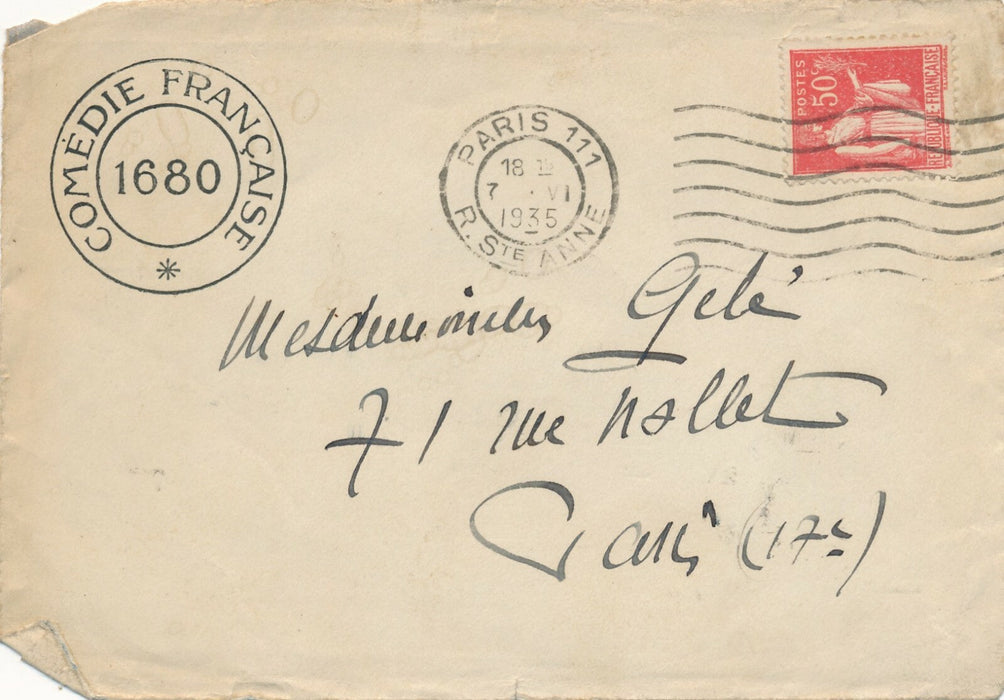 COMÉDIE FRANÇAISE
1680
PARIS 111
18 H
7 · VI
1935
R. STE ANNE
POSTES
50c
REPUBLIQUE·FRANÇAISE
Mesdemoiselles Gelé
71 rue Nollet
Paris (17e)